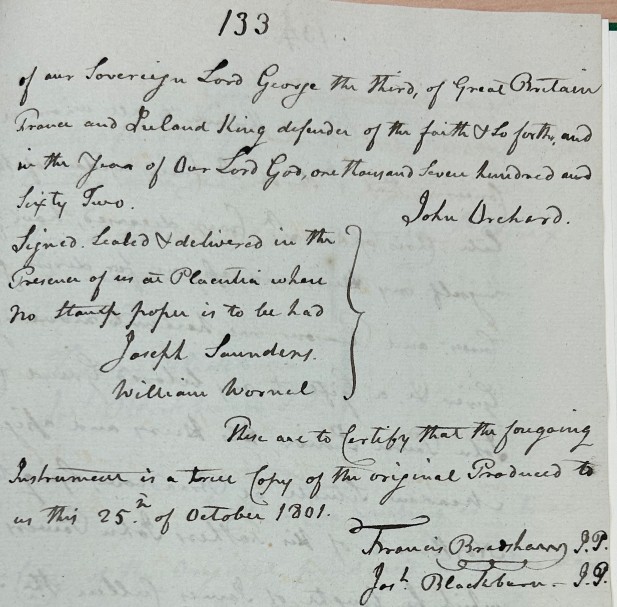 133
of our Sovereign Lord George the third, of Great Britain
France and Ireland King defender of the faith & So forth, and
in the Year of Our Lord God, one thousand Seven hundred and
Sixty Two.
John Orchard.
Signed. Sealed & delivered in the
Presence of us at Placentia where
no Stamp paper is to be had
Joseph Saunders.
William Wornel
These are to Certify that the foregoing
Instrument is a true Copy of the original Produced to
us this 25.th of October 1801.
Francis Bradshaw J.P.
Jos.h Blackburn - J.P.